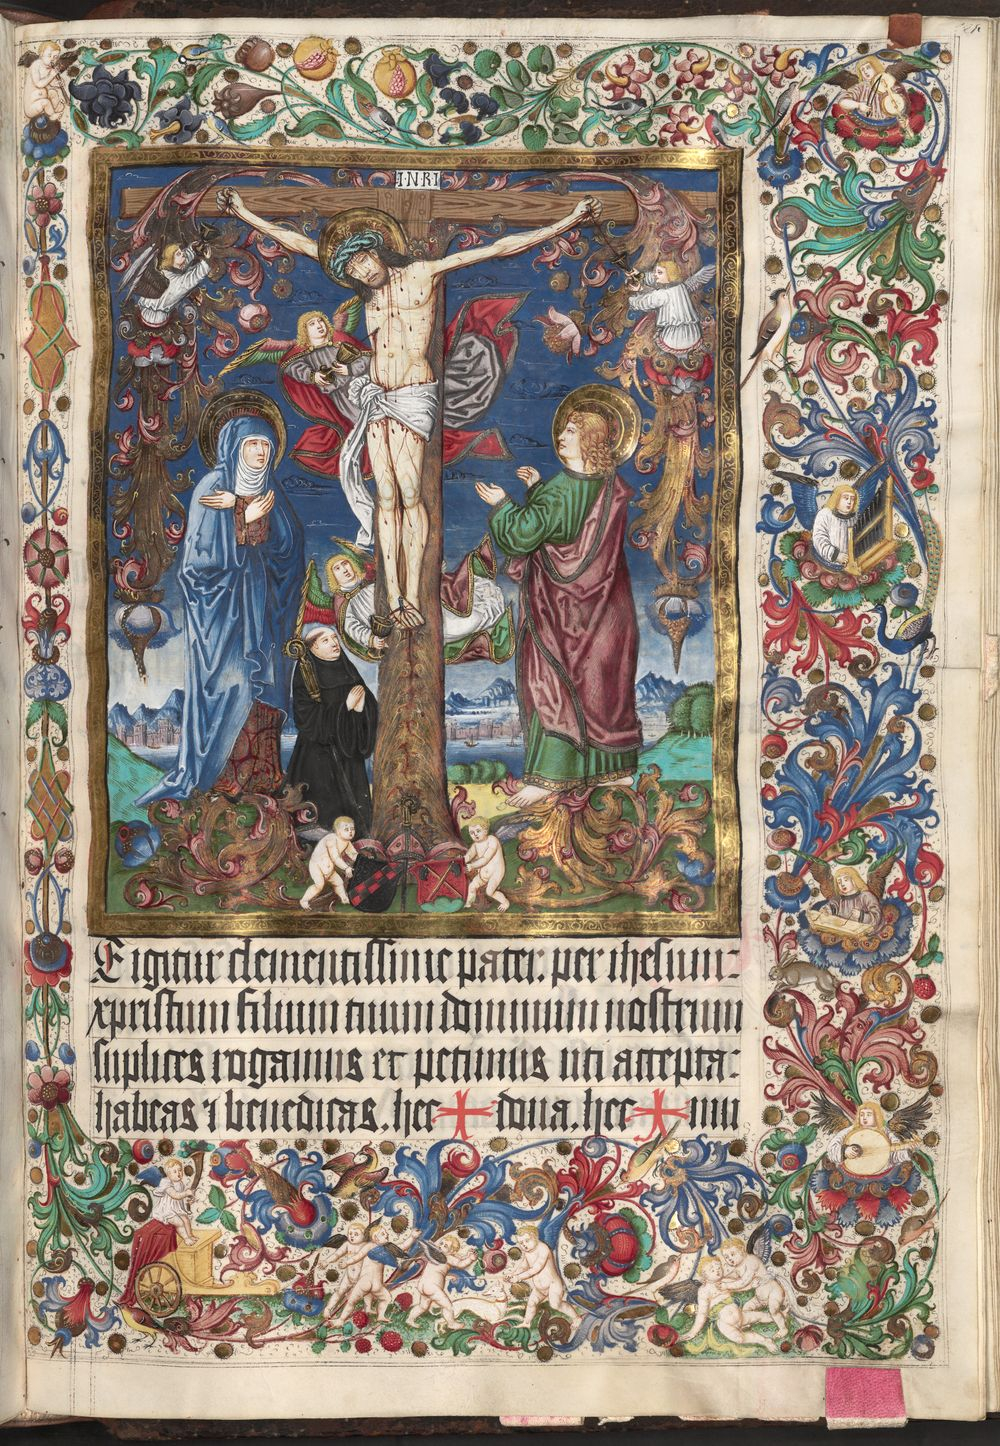 I·N·R·I
Te igitur clementissime pater. per ihesum:
xpristum filium tuum dominum nostrum
suplices rogamus et petimus uti accepta:
habeas ⁊ benedicas. hec ✠ dona. hec ✠ mu